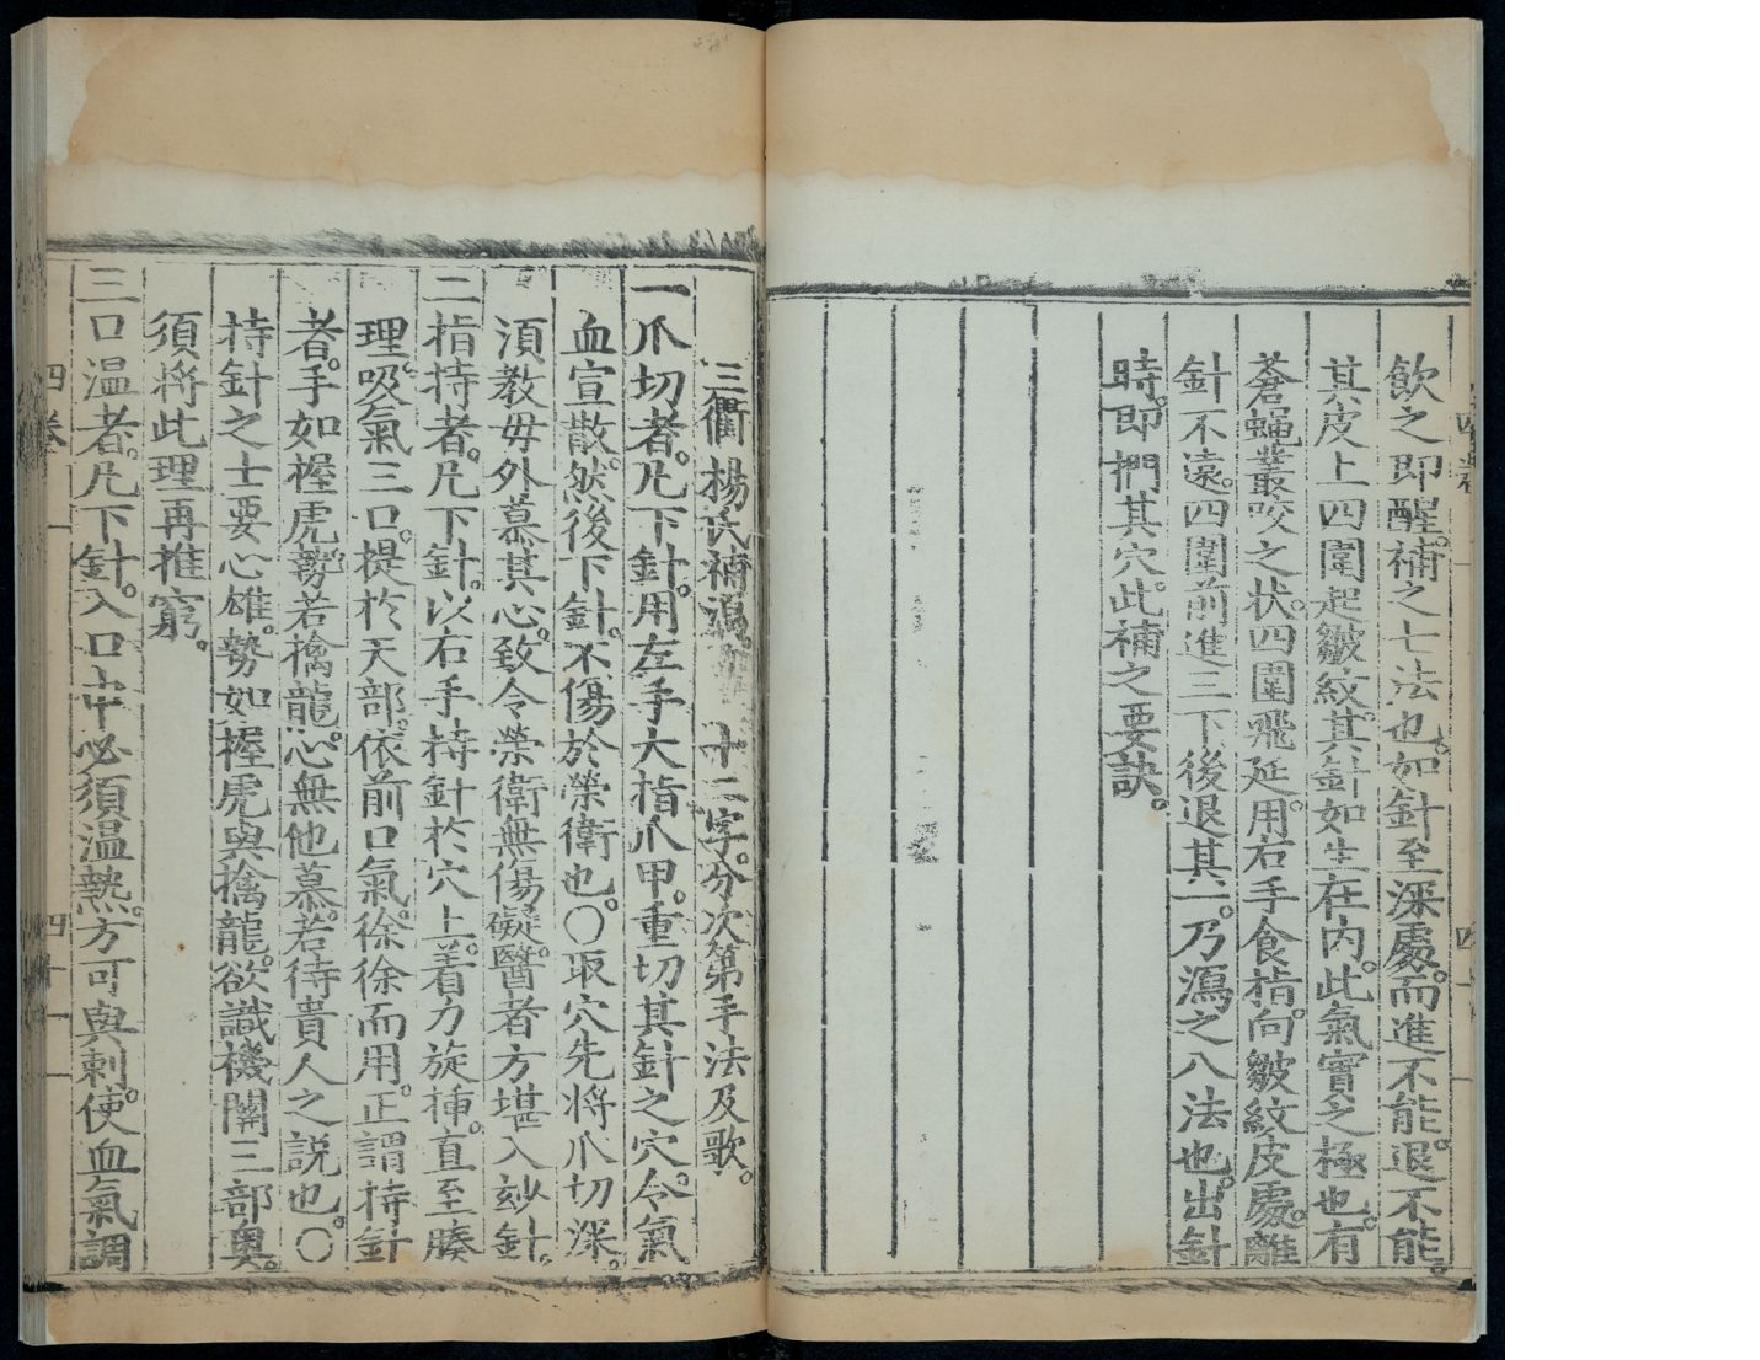 飲之即醒。補之七法也。如針至深處。而進不能。退不能。
其皮上四圍起皺紋。其針如生在內。此氣實之極也。有
蒼蠅叢咬之状。四圍飛延。用右手食指。向皺紋皮處。離
針不遠。四圍前進三下後退其一。乃瀉之八法也。出針
時。即捫其穴。此補之要訣。
三衢楊氏補瀉。十二字。分次第手法及歌。
一爪切者。凡下針。用左手大指爪甲。重切其針之穴。令氣
血宣散。然後下針。不傷於榮衛也。○取穴先將爪切深。
湏教毋外慕其心。致令榮衛無傷礙。醫者方堪入玅針。
二指持者。凡下針。以右手持針於穴上。着力旋揷。直至腠
理。吸氣三口。提於天部。依前口氣。徐徐而用。正謂持針
者。手如握虎。勢若擒龍。心無他慕。若待貴人之説也。○
持針之士要心雄。勢如握虎與擒龍。欲識機關三部奧。
須將此理再推窮。
三口温者。凡下針。入口中必須温熱。方可與刺。使血氣調
四卷
四十一